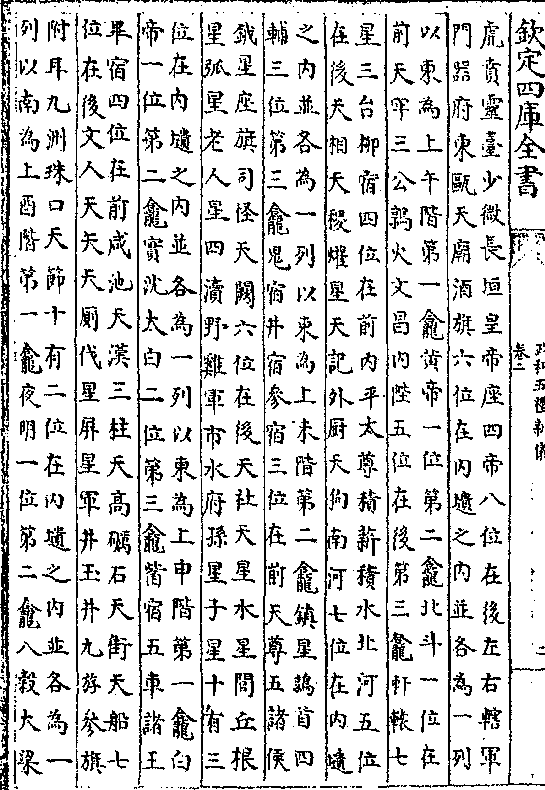 欽定四庫全書
政和五禮新儀
卷二
虎賁靈臺少微長垣皇帝座四帝八位在後左右轄軍
門器府東甌天廟酒旗六位在内壝之内並各為一列
以東為上午階第一龕黄帝一位第二龕北斗一位在
前天牢三公鶉火文昌内陛五位在後第三龕軒轅七
星三台栁宿四位在前内平太尊積薪積水北河五位
在後天相天稷爟星天記外厨天狗南河七位在内壝
之内並各為一列以東為上未階第二龕鎮星鶉首四
輔三位第三龕鬼宿井宿參宿三位在前天尊五諸侯
鉞星座旗司怪天闗六位在後天社天星水星闕丘狼
星弧星老人星四瀆野雞軍市水府孫星子星十有三
位在内壝之内並各為一列以東為上申階第一龕白
帝一位第二龕實沈太白二位第三龕觜宿五車諸王
畢宿四位在前咸池天漢三柱天高礪石天街天船七
位在後文人天矢天厠伐星屏星軍井玉井九斿參旗
附耳九洲珠口天節十有二位在内壝之内並各為一
列以南為上酉階第一龕夜明一位第二龕八穀大梁